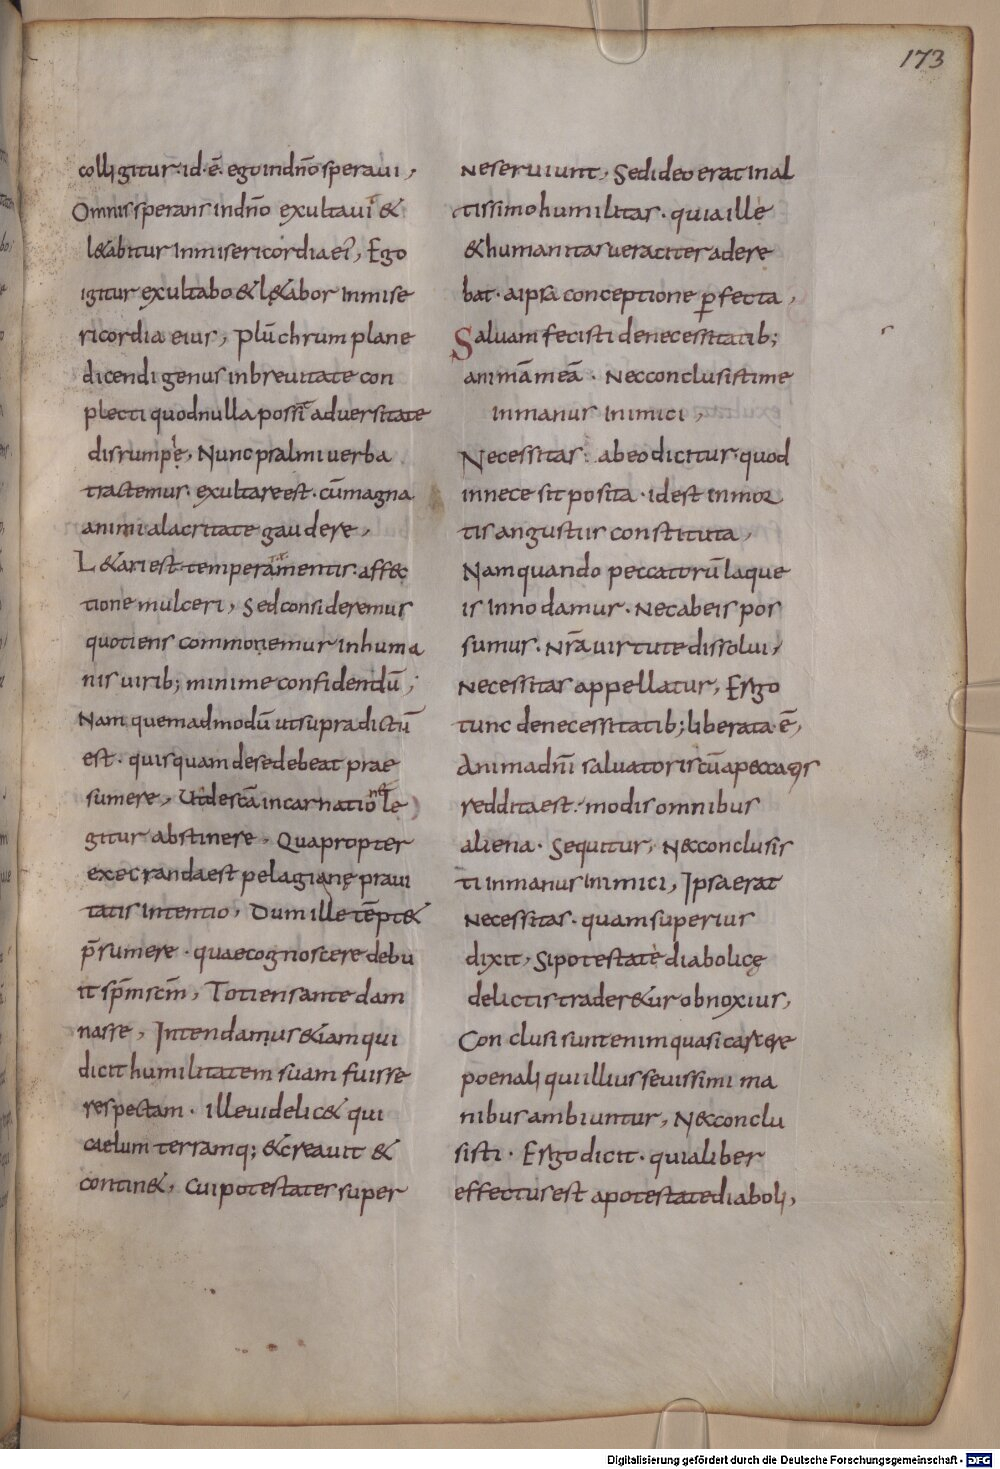 173
colligitur· id· ē· ego in dn̄o speravi,
Omnis sperans in dn̄o exultavit &
l&abitur in misericordia ei', Ego
igitur exultabo & l&abor in mise
ricordia eius, Pulchrum plane
dicendi genus in brevitate con
plecti quod nulla possit adversitate
disrumpi, Nunc psalmi verba
tractemus· exultare est· cū magna
animi alacritate gaudere,
L&ari est temperamentis· affec
tione mulceri, Sed consideremus
quotiens commonemur in huma
nis virib; minime confidendū,
Nam quemadmodū ut supra dictū
est· quisquam de se debeat prae
sumere, Ut de scā incarnatione le
gitur abstinere, Quapropter
execranda est pelagianę pravi
tatis intentio, Dum ille tēpt&
p̄sumere· quae cognoscere debu
it sp̄m sc̄m, Totiens ante dam
nasse, Intendamus &iam qui
dicit humilitatem suam fuisse
respectam· ille videlic& qui
caelum terramq; & creavit &
contin&, cui potestates super
ne serviunt, Sed ideo erat in al
tissimo humilitas· quia ille
& humanitas veraciter adere
bat· a ipsa conceptione perfecta,
Salvam fecisti de necessitatib;
animā meā· Nec conclusisti me
in manus inimici,
Necessitas· ab eo dicitur· quod
in nece sit posita· id est in mor
tis angustiis constituta,
Nam quando peccatorū laque
is innodamur· Nec ab eis pos
sumus· nr̄a virtute dissolui,
Necessitas appellatur, Ergo
tunc de necessitatib; liberata· ē,
Anima dn̄i salvatoris cū a peccatis
reddita est· modis omnibus
aliena· Sequitur, N& conclusis
ti in manus inimici, Ipsa erat
necessitas· quam superius
dixit, Si potestate diabolicę
delictis trader&ur obnoxius,
Conclusi sunt enim quasi carcere
poenali qui illius sevissimi ma
nibus ambiuntur, N& conclu
sisti· Ergo dicit· quia liber
effectus est a potestate diaboli,
Digitalisierung gefördert durch die Deutsche Forschungsgemeinschaft - DFG